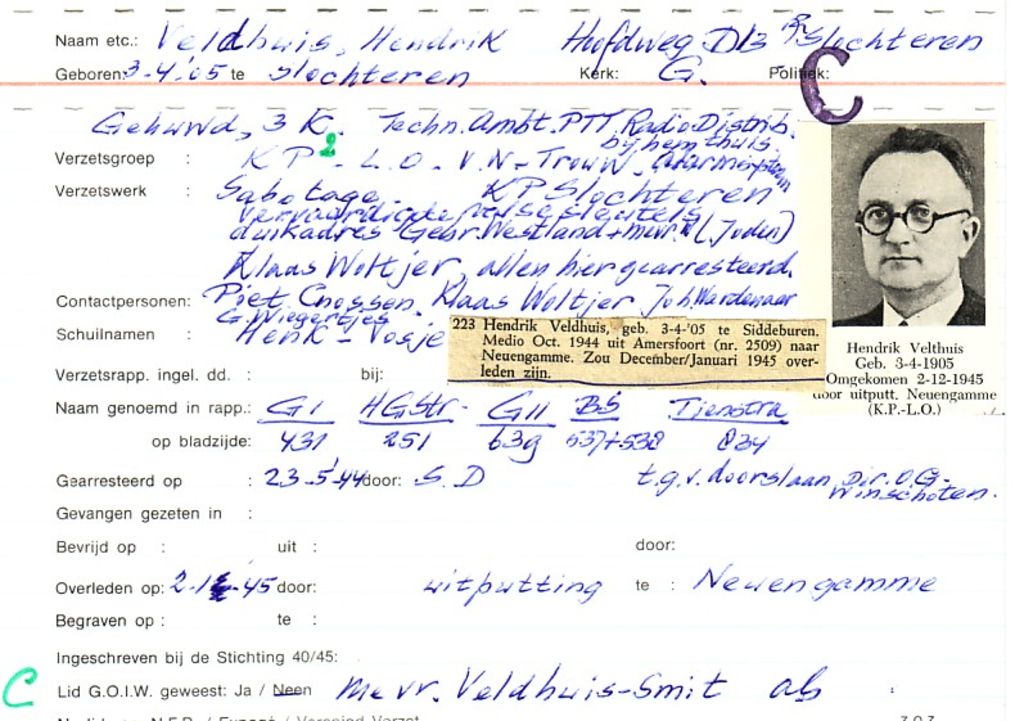 Naam etc.: Veldhuis, Hendrik Hoofdweg D13 Slochteren
Geboren: 3-4-'05 te Slochteren Kerk: G. Politiek:
C
Gehuwd, 3 K. Techn. Ambt. PTT, Radio Distrib.
bij hem thuis.
Verzetsgroep : K P - L.O. - V.N - Trouw,
2
Verzetswerk : Sabotage. K.P. Slochteren
vervaardigde valse sleutels
duikadres Gebr. Westland + mevr. (Joden)
Klaas Woltjer, allen hier gearresteerd.
Contactpersonen: Piet Cnossen, Klaas Woltjer, Joh. Wardenaar
G. Wiegertjes
Schuilnamen : Henk - Vosje
223 Hendrik Veldhuis, geb. 3-4-'05 te Siddeburen.
Medio Oct. 1944 uit Amersfoort (nr. 2509) naar
Neuengamme. Zou December/Januari 1945 over-
leden zijn.
Hendrik Velthuis
Geb. 3-4-1905
Omgekomen 2-12-1945
door uitputt. Neuengamme
(K.P.-L.O.)
Verzetsrapp. ingel. dd. : bij:
Naam genoemd in rapp.: G I HGStr. G II BS Tjenstra
op bladzijde: 431 251 639 537+538 834
Gearresteerd op : 23-5-'44 door: S.D t.g.v. doorslaan Dir. O.G.
Winschoten.
Gevangen gezeten in :
Bevrijd op : uit : door:
Overleden op: 2-12-45 door: uitputting te : Neuengamme
Begraven op : te :
Ingeschreven bij de Stichting 40/45:
C
Lid G.O.I.W. geweest: Ja / Neen Mevr. Veldhuis-Smit als :